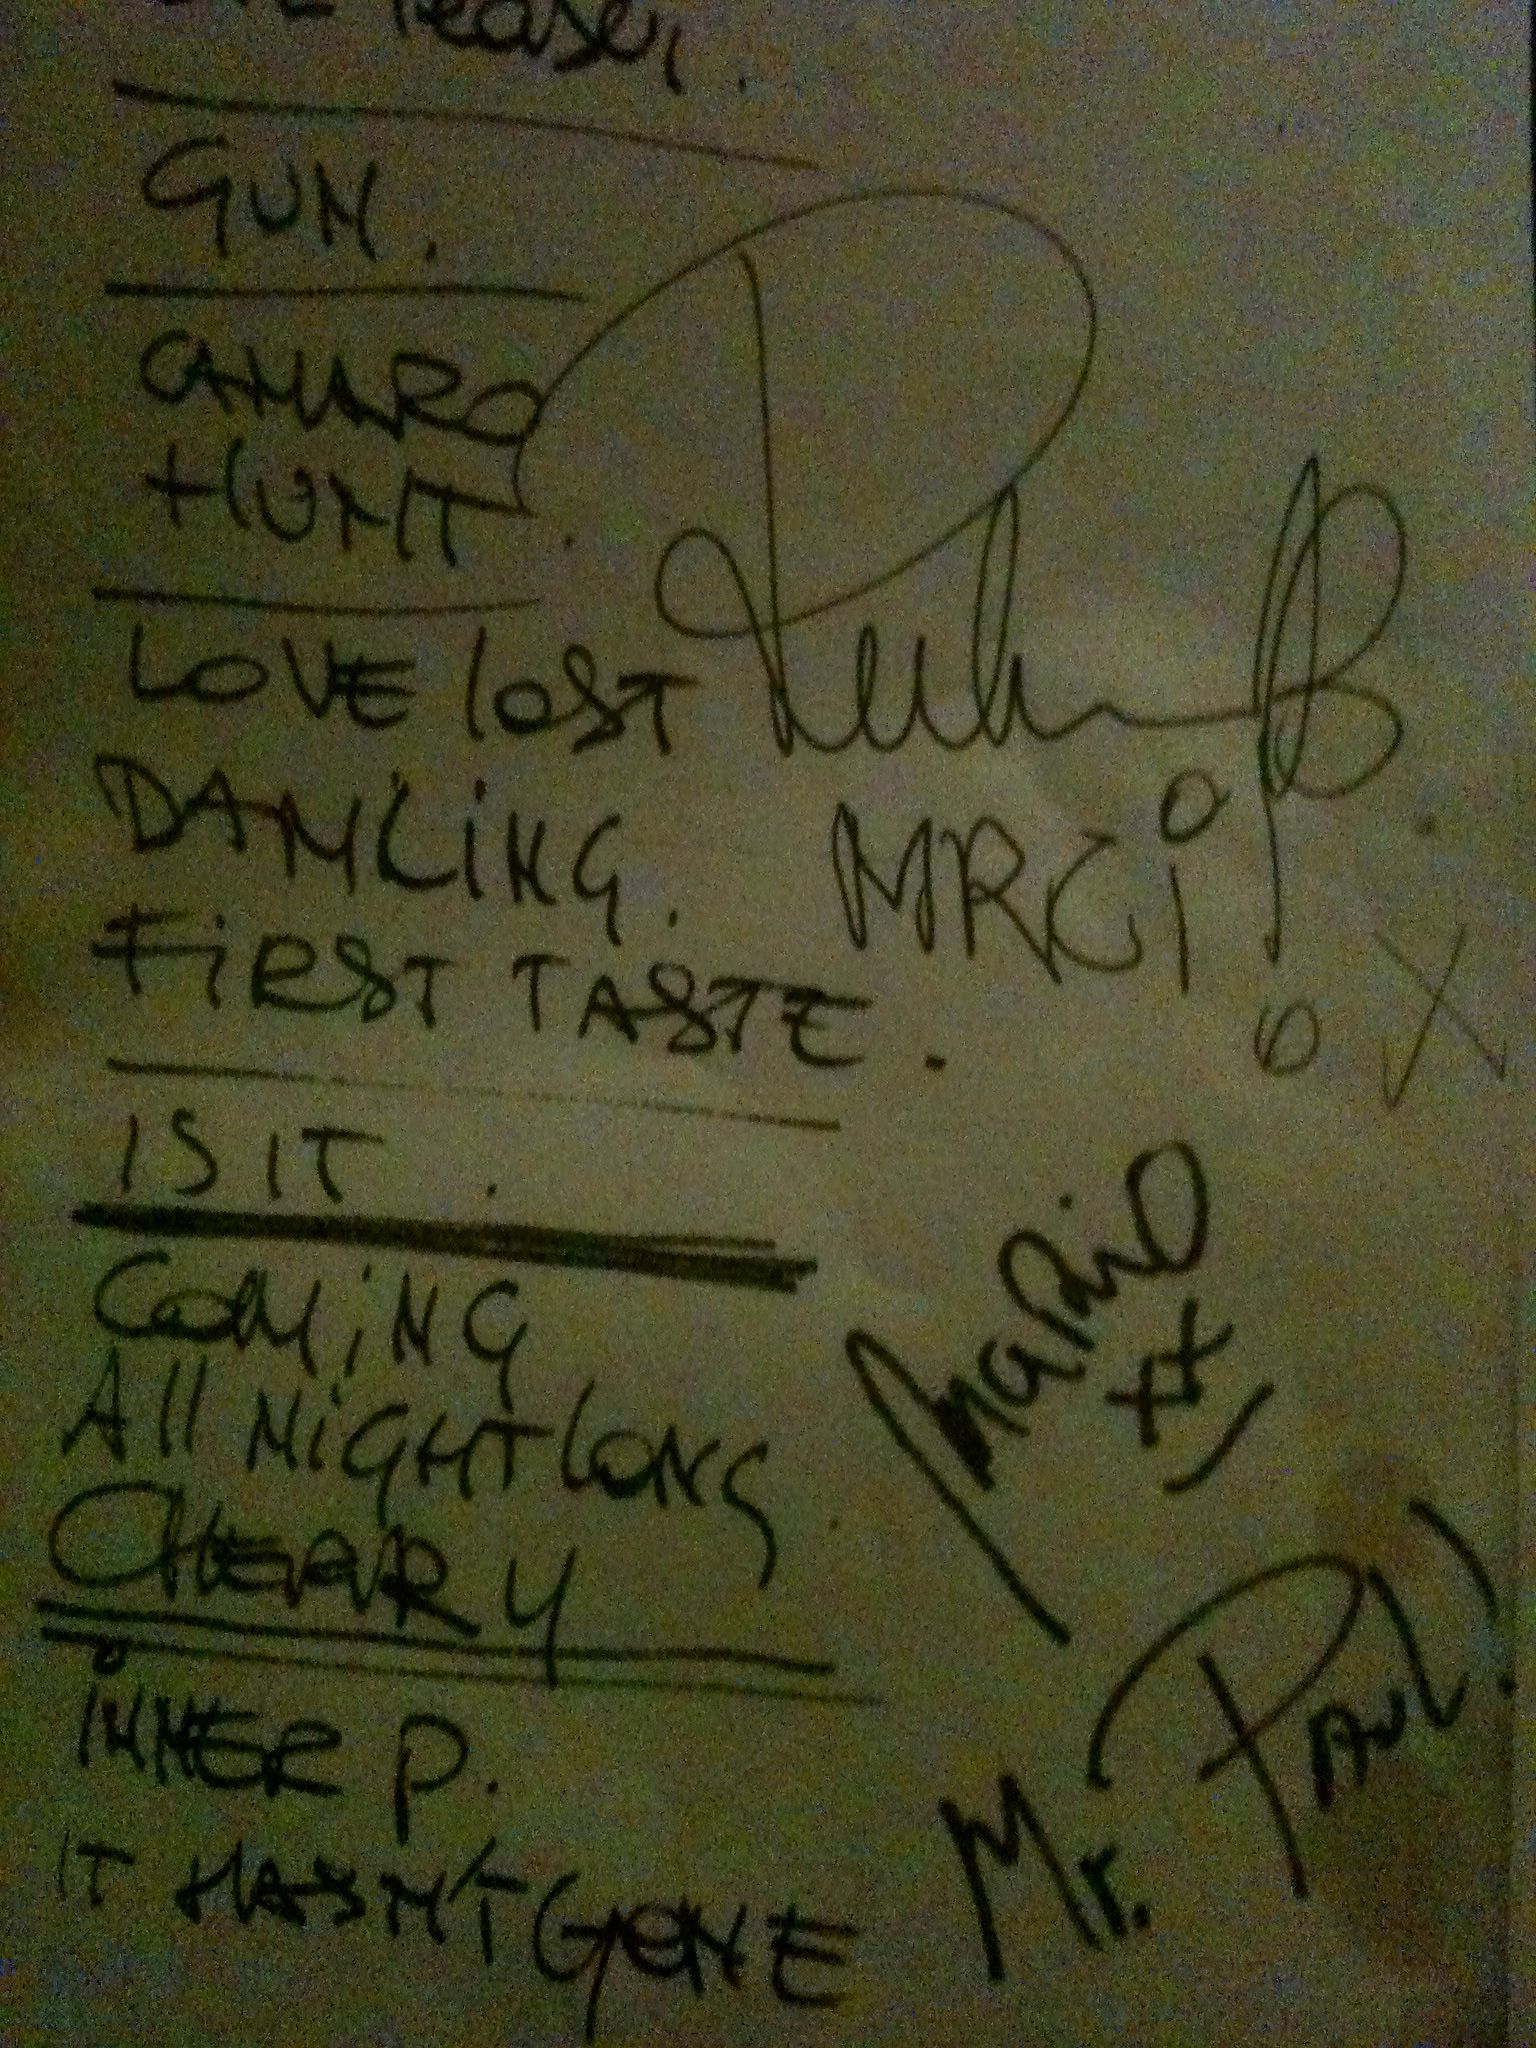 GUN.
CAMARO
HUNT.
LOVE lOST
DAMLiNG.
FiRST TASTE.
MRCi
IS IT.
COMiNG
All NiGHT lONG
CHERRY
MaRiO
xx
Mr. PAUL!
iNNER P.
IT HASN'T GONE